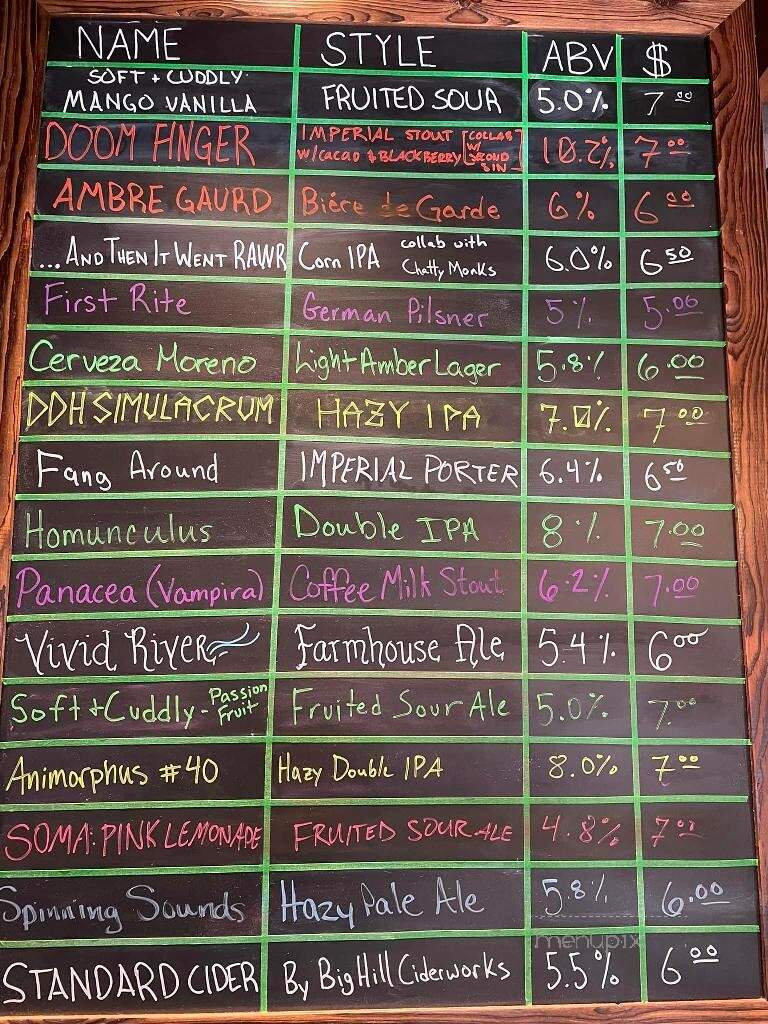 NAME STYLE ABV $
SOFT + CUDDLY
MANGO VANILLA FRUITED SOUR 5.0% 7 00
DOOM FINGER IMPERIAL STOUT W/CACAO & BLACKBERRY [COLLAB W/ SECOND SIN] 10.2% 7 00
AMBRE GAURD Biére de Garde 6% 6 00
...AND THEN IT WENT RAWR Corn IPA collab with Chatty Monks 6.0% 6 50
First Rite German Pilsner 5% 5.00
Cerveza Moreno Light Amber Lager 5.8% 6.00
DDH SIMULACRUM HAZY IPA 7.0% 7 00
Fang Around IMPERIAL PORTER 6.4% 6 50
Homunculus Double IPA 8% 7.00
Panacea (Vampira) Coffee Milk Stout 6.2% 7.00
Vivid River Farmhouse Ale 5.4% 6 00
Soft + Cuddly - Passion Fruit Fruited Sour Ale 5.0% 7.00
Animorphus #40 Hazy Double IPA 8.0% 7 00
SOMA: PINK LEMONADE FRUITED SOUR ALE 4.8% 7 00
Spinning Sounds Hazy Pale Ale 5.8% 6.00
menupix
STANDARD CIDER By Big Hill Ciderworks 5.5% 6 00